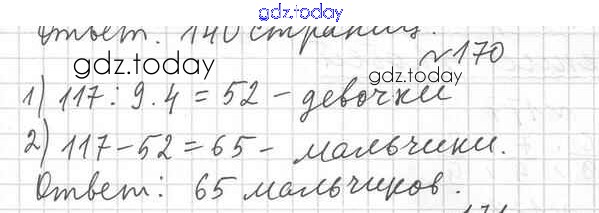 gdz.today
Ответ: 140 страниц.
№170
gdz.today
gdz.today
1) 117 : 9 · 4 = 52 - девочки
2) 117 - 52 = 65 - мальчики.
Ответ: 65 мальчиков.